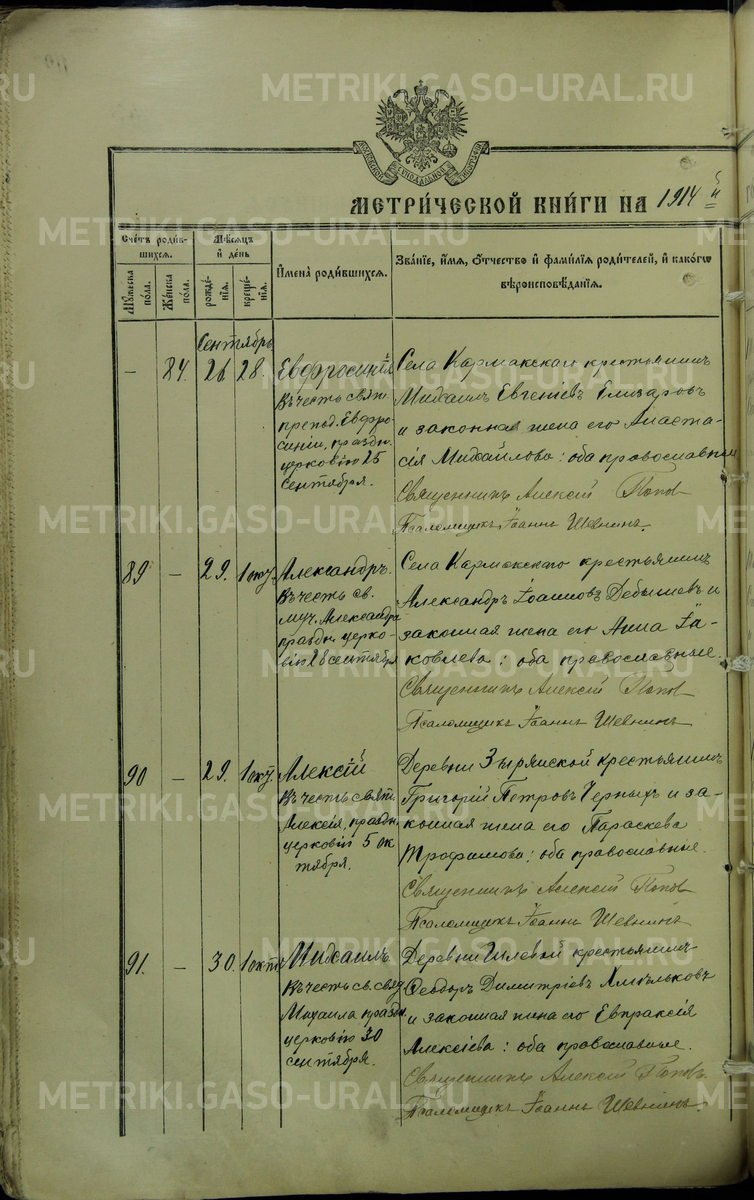 METRIKI.GASO-URAL.RU
МЕТРИ́ЧЕСКОЙ КНИ́ГИ НА 1914 й
Сче́тъ роди́в-
шихся.
Му́жеска
по́ла.
Же́нска
по́ла.
Мѣ́сяцъ
и́ де́нь
рожде́-
нїя.
креще́-
нїя.
И҆мена̀ роди́вшихся.
Зва́нїе, и҆́мя, ѻ҆́тчество и҆ фами́лїя роди́телей, и҆ како́гѡ
вѣроисповѣ́данїя.
Сентябрь
— 84. 26 28.
Евфросинія
Въ честь свят.
препод. Евфро-
синіи, праздн.
церковію 25
сентября.
Села Кармакскаго крестьянинъ
Михаилъ Евгеніевъ Елизаровъ
и законная жена его Анаста-
сія Михайлова: оба православные
Священникъ Алексій Поповъ
Псаломщикъ Іоаннъ Шевнинъ.
89 — 29. 1 окт.
Александръ.
Въ честь св.
муч. Александра
праздн. церко-
вію 28 сентября
Села Кармакскаго крестьянинъ
Александръ Іоанновъ Дебышевъ и
законная жена его Анна Іа-
ковлева: оба православные.
Священникъ Алексій Поповъ
Псаломщикъ Іоаннъ Шевнинъ
90 — 29. 1 окт.
Алексій
Въ честь свят.
Алексія, праздн.
церковію 5 ок
тября.
Деревни Зырянской крестьянинъ
Григорій Петровъ Черныхъ и за-
конная жена его Параскева
Трофимова: оба православные.
Священникъ Алексій Поповъ
Псаломщикъ Іоаннъ Шевнинъ
91. — 30. 1 окт.
Михаилъ.
Въ честь св. свящ
Михаила праздн.
церковію 30
сентября.
Деревни крестьянинъ
Феодоръ Димитріевъ Хмѣльковъ
и законная жена его Евпраксія
Алексіева: оба православные.
Священникъ Алексій Поповъ.
Псаломщикъ Іоаннъ Шевнинъ.